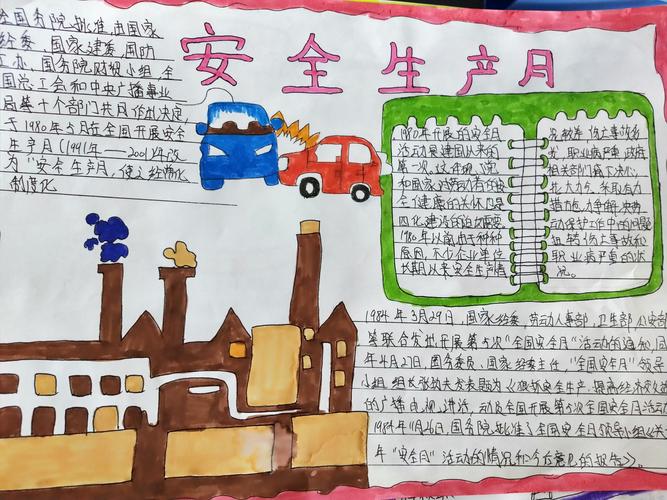 安全生产月
全国务院批准,由国家
经委、国家建委、国防
工办、国务院财贸小组、全
国总工会和中央广播事业
局等十个部门共同作出决定,
于1980年5月在全国开展安全
生产月(1991年—2001年改
为"安全生产月,使之经常化
制度化
1980年开展的安全月
活动是建国以来的
第一次。这体现,党
和国家对劳动者的安
全健康的关怀,也是
四化建设的迫切需要
1980年以前由于种种
原因,不少企业单位
长期以来安全生产情
况较差,伤亡事故多
发,职业病严重,政府
相关部门痛下决心,
花大力气,采取有力
措施,力争解决劳
动保护工作中的问题
扭转伤亡事故和
职业病严重的状
况。
1984年3月29日,国家经委,劳动人事部,卫生部,公安部
等联合发出开展第5次"全国安全月"活动的通知,同
年4月27日,国务委员、国家经委主任,"全国安全月"领导
小组组长张劲夫发表题为《狠抓安全生产,提高经济效益》
的广播电视讲话,动员全国开展第5次全国安全月活动
1984年11月26日,国务院批准了全国安全月领导小组《关于
年"安全月"活动的情况和今后意见的报告》。